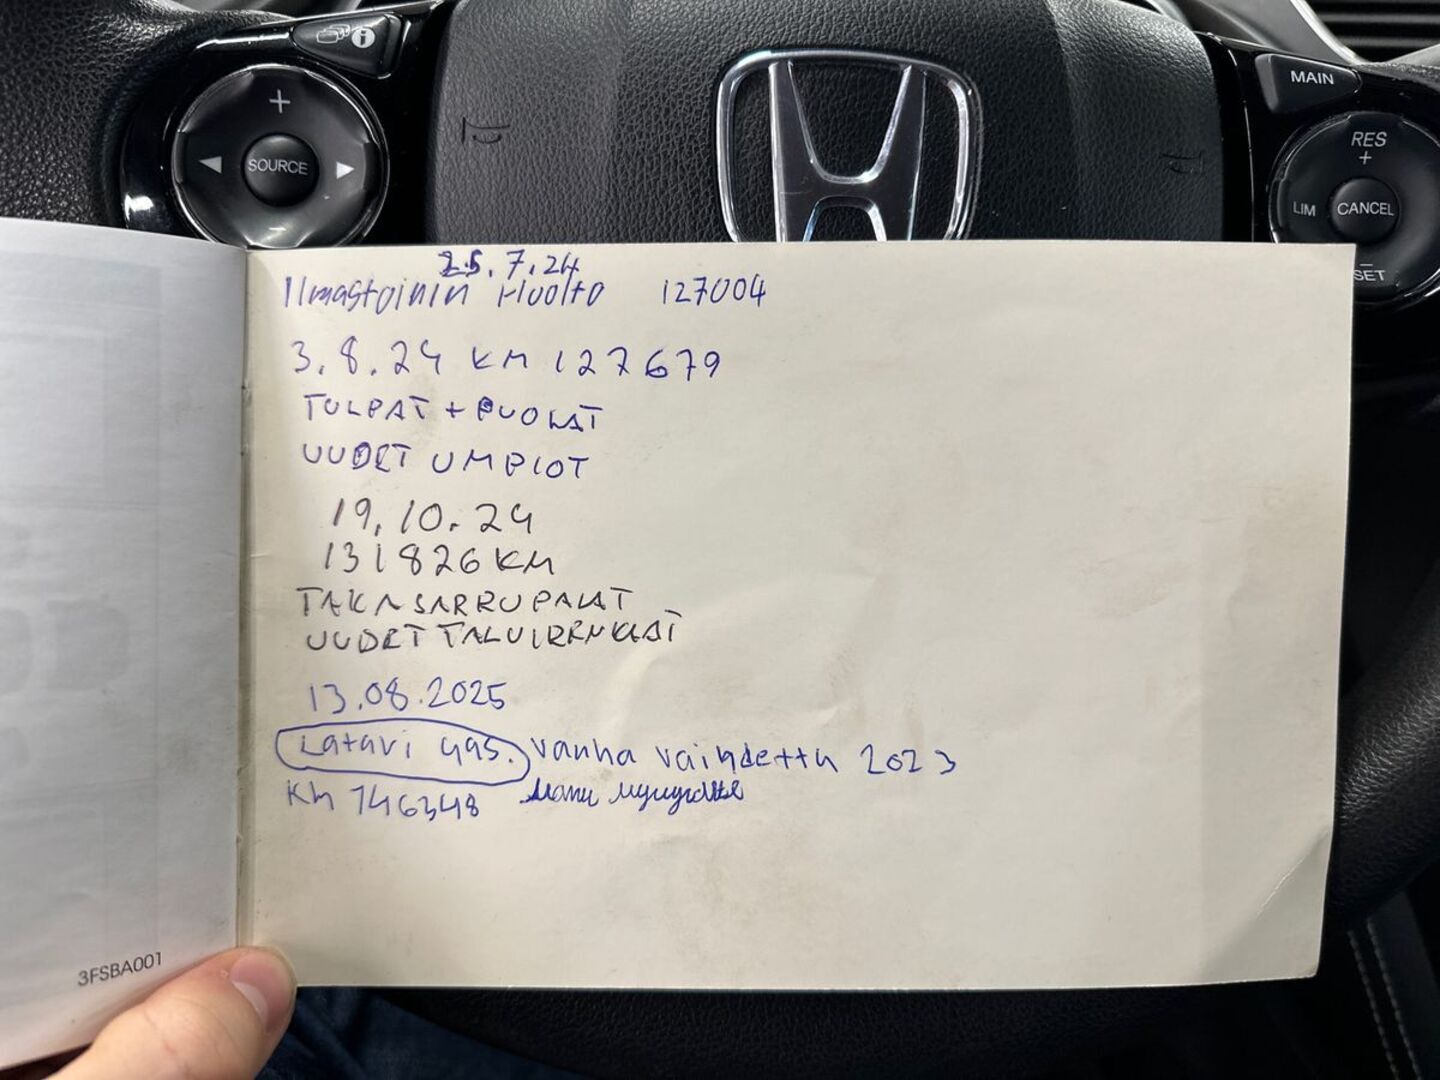 +
SOURCE
-
i
MAIN
RES
+
LIM
CANCEL
-
SET
25.7.24
Ilmastoinin Huolto 127004
3.8.24 KM 127679
TULPAT + PUOLAT
UUDET UMPIOT
19.10.24
131826 KM
TAKASARRUPALAT
UUDET TALVIRENKAAT
13.08.2025
Latavi 495. vanha vaihdettu 2023
KM 146348
3FSBA001